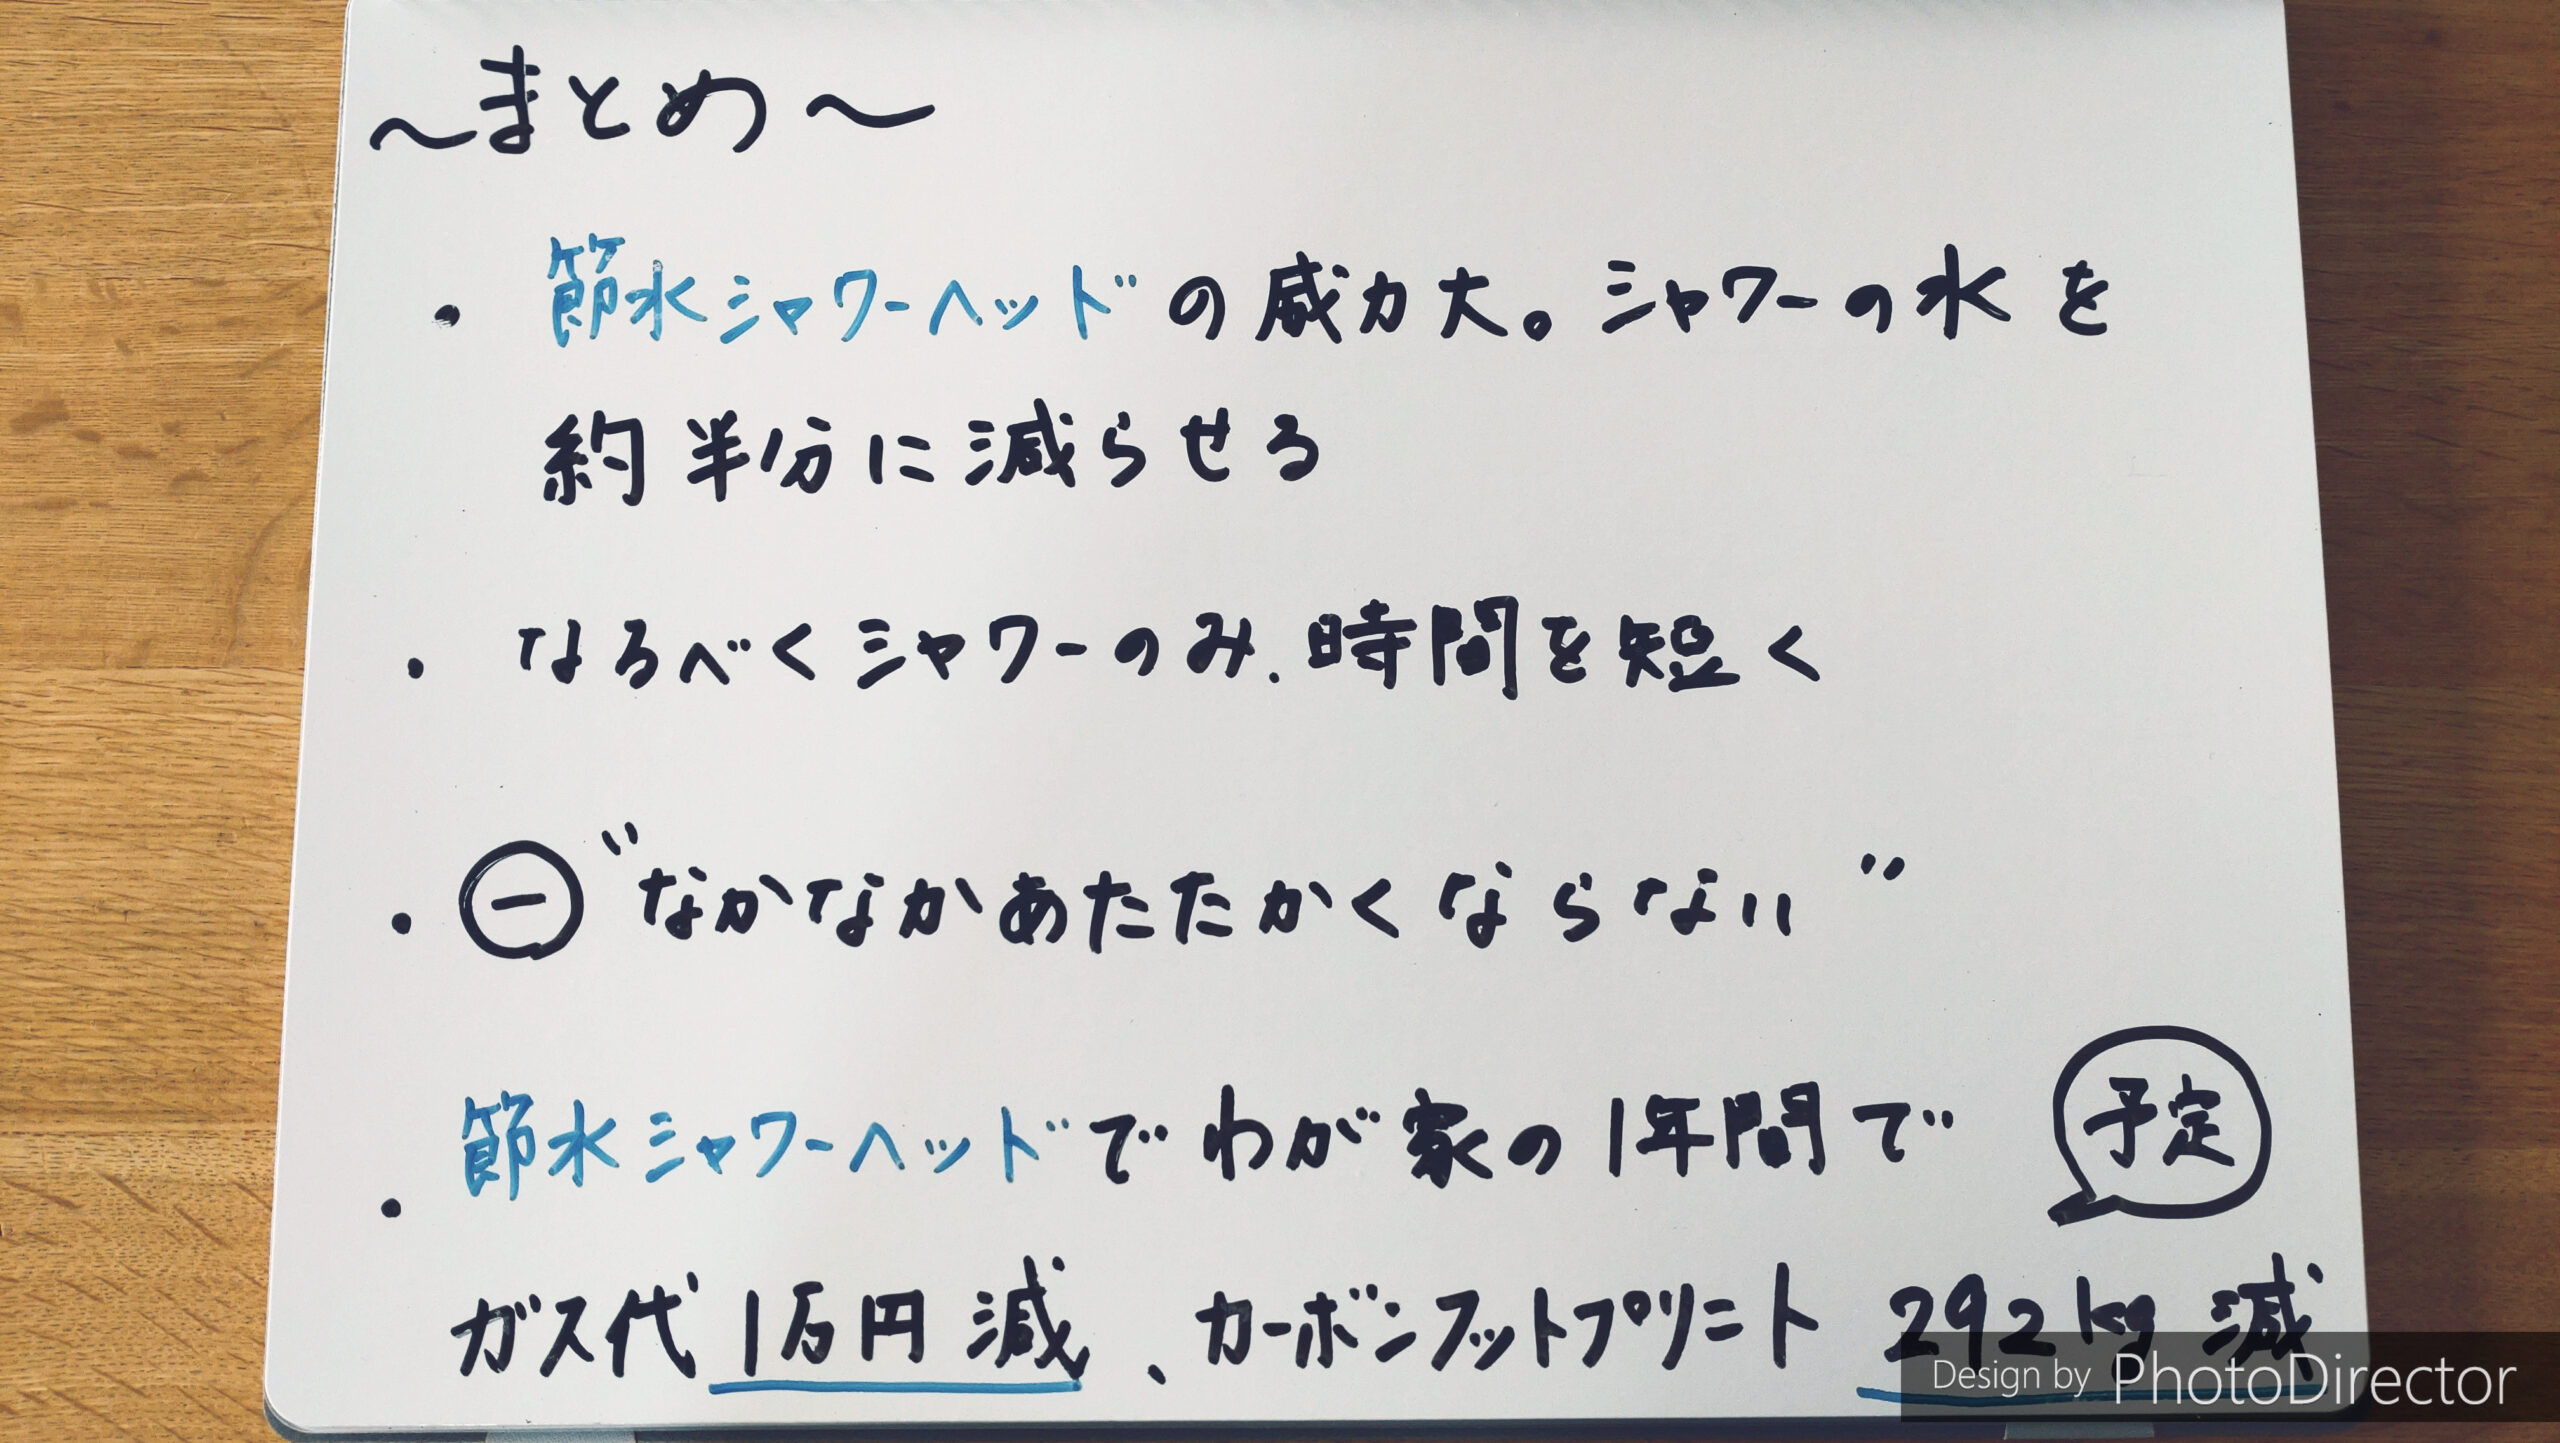 ～まとめ～
・ 節水シャワーヘッドの威力大。シャワーの水を
約半分に減らせる
・ なるべくシャワーのみ、時間を短く
・ ㊀ "なかなかあたたかくならない"
・ 節水シャワーヘッドでわが家の1年間で
予定
ガス代 1万円減、カーボンフットプリント 292kg減
Design by PhotoDirector